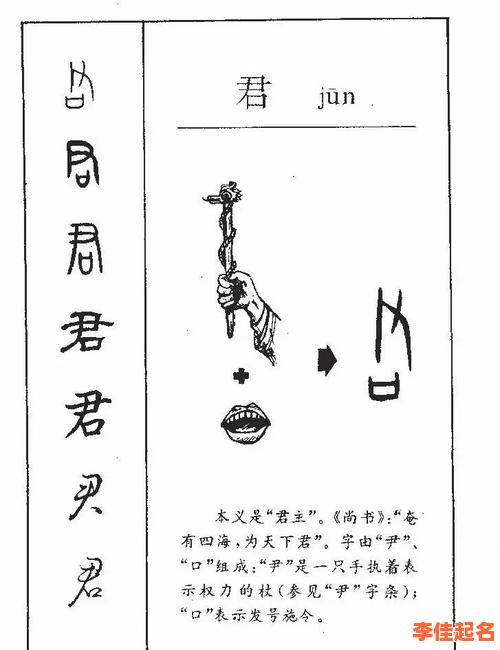 君 jūn
君
君
君
君
君
君
君
本义是“君主”。《尚书》：“奄
有四海，为天下君”。字由“尹”、
“口”组成：“尹”是一只手执着表
示权力的杖（参见“尹”字条）；
“口”表示发号施令。
李佳起名